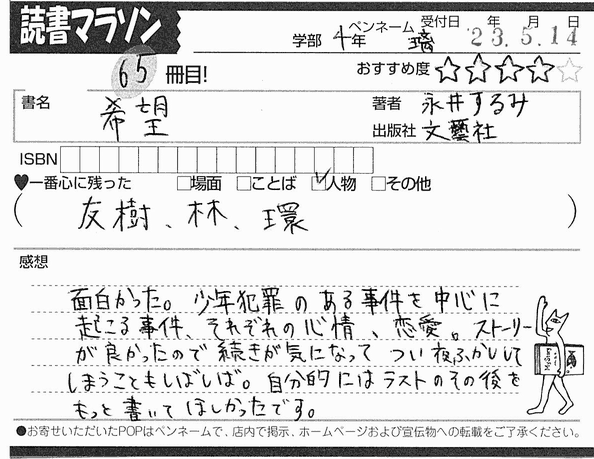 読書マラソン
学部 4年 ペンネーム 璃 受付日 年 月 日 '23.5.14
65冊目!
おすすめ度 ☆☆☆☆☆
書名 希望
著者 永井するみ
出版社 文藝社
ISBN
♥一番心に残った □場面 □ことば ☑人物 □その他
(友樹、林、環)
感想
面白かった。少年犯罪のある事件を中心に
起こる事件、それぞれの心情、恋愛。ストーリー
が良かったので続きが気になって つい夜ふかしして
しまうこともしばしば。自分的にはラストのその後を
もっと書いてほしかったです。
●お寄せいただいたPOPはペンネームで、店内で掲示、ホームページおよび宣伝物への転載をご了承ください。